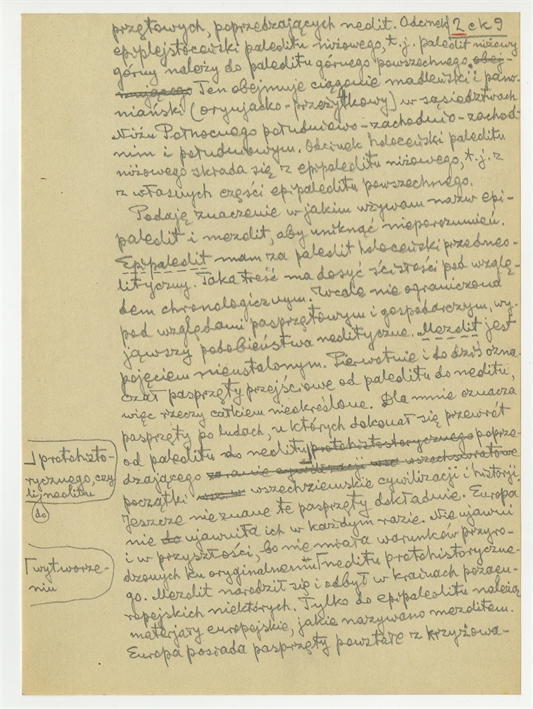 przętowych, poprzedzających neolit. Odcinek 2 c k 9
epiplejstoceński paleolitu niżowego, t.j. paleolit niżowy
górny należy do paleolitu górnego powszechnego, obej-
mującego Ten obejmuje ciągenie madleński i paw-
niański (oryniacko-przeżytkowy) w sąsiedztwach
Niżu Północnego południowo-zachodnio-zachod-
nim i południowym. Odcinek holoceński paleolitu
niżowego składa się z epipaleolitu niżowego, t.j. z
z własnych części epipaleolitu powszechnego.
Podaję znaczenie w jakim używam nazw epi-
paleolit i mezolit, aby uniknąć nieporozumień.
Epipaleolit mam za paleolit holoceński przedneo-
lityczny. Taka treść ma dosyć ścisłości pod wzglę-
dem chronologicznym. Wcale nie ograniczona
pod względami pasprzętowym i gospodarczym, wy-
jąwszy podobieństwa neolityczne. Mezolit jest
pojęciem nieustalonym. Pierwotnie i do dziś ozna-
czał pasprzęty przejściowe od paleolitu do neolitu,
więc rzeczy całkiem nieokreślone. Dla mnie oznacza
pasprzęty po ludach, u których dokonał się przewrót
od paleolitu do neolitu protohistorycznego poprze-
dzającego zaranie cywilizacji wszechświatowe
początki wszechziemskie cywilizacji i historji.
Jeszcze nie znane te pasprzęty dokładnie. Europa
nie do ujawniła ich w każdym razie. Nie ujawni
i w przyszłości, bo nie miała warunków przyro-
dzonych ku oryginalnemu ⌈ neolitu protohistoryczne-
go. Mezolit narodził się i odbył w krainach pozaeu-
ropejskich niektórych. Tylko do epipaleolitu należą
materjały europejskie, jakie nazywano mezolitem.
Europa posiada pasprzęty powstałe z krzyżowa-
⅃ protohisto-
rycznego, czy-
li neolitu
do
⌈ wytworze-
niu